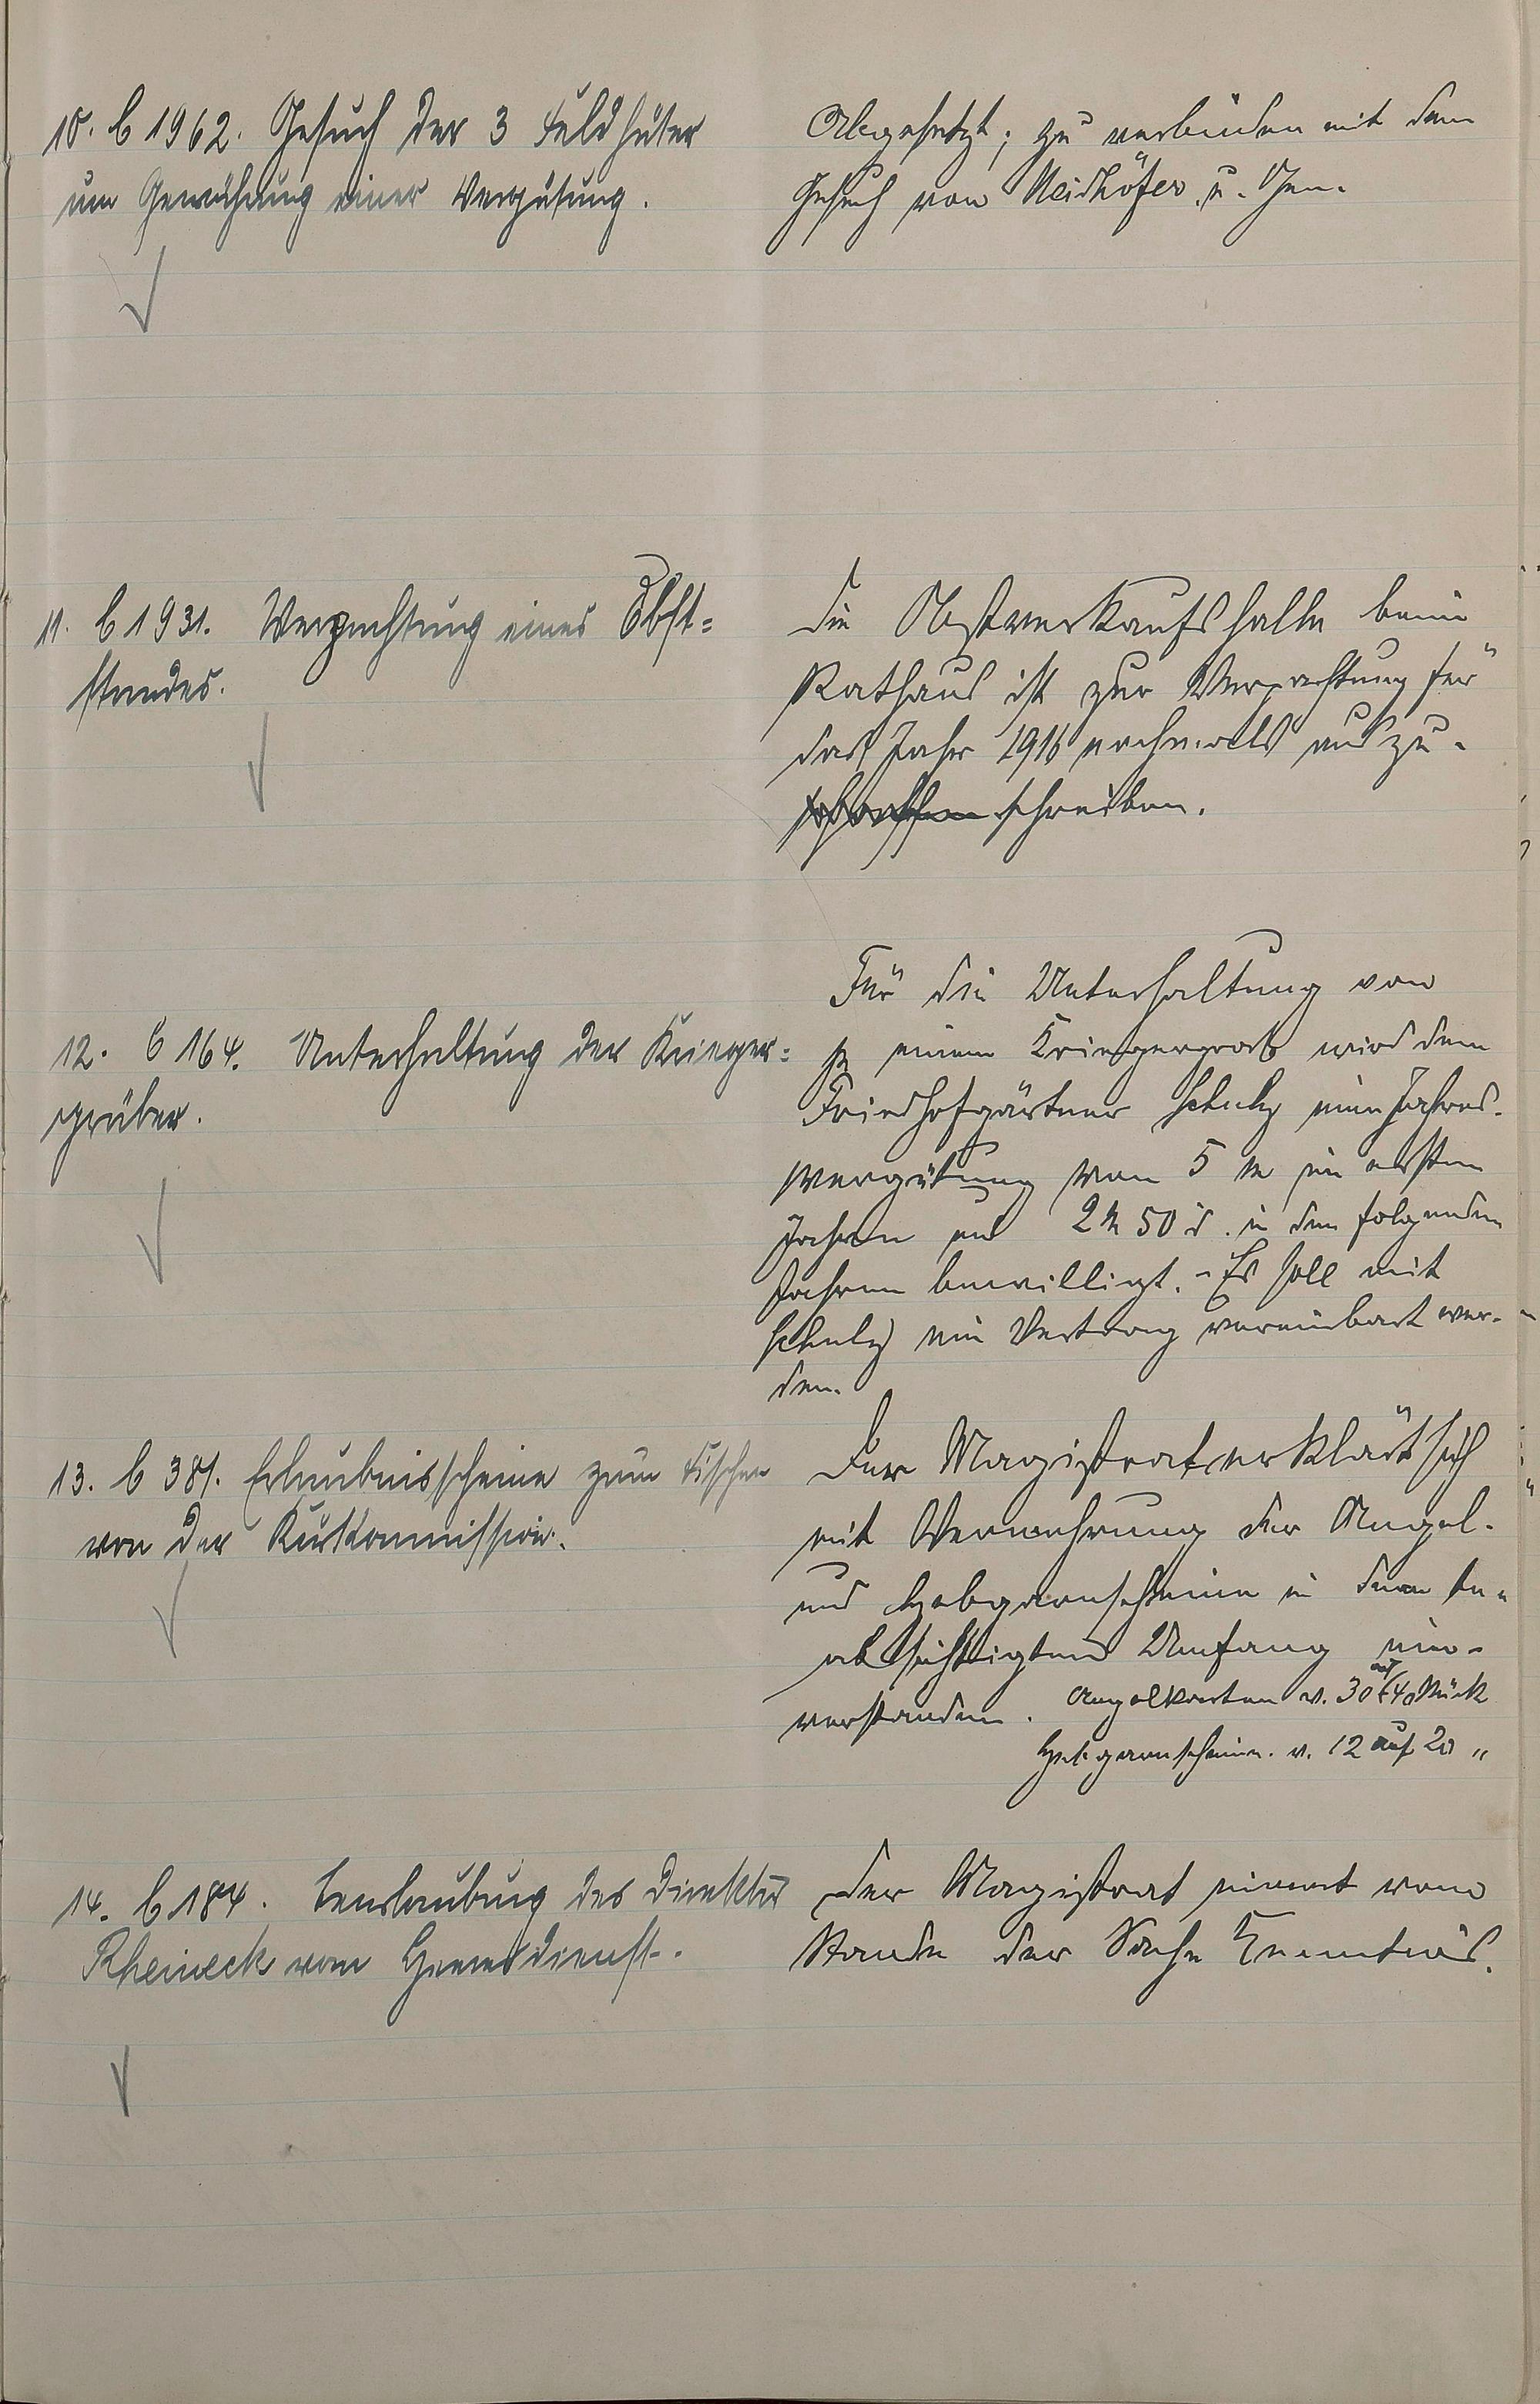 10. C 1962. Gesuch der 3 Feldhüter
um Gewährung einer Vergütung.
Abgesetzt; zu verbinden mit dem
Gesuch von Neidhöfer u. Gen.
11. C 1931. Verpachtung eines Obst=
standes.
Die Obstverkaufshalle beim
Rathaus ist zur Verpachtung für
das Jahr 1916 nochmals auszu-
schreiben.
12. C 164. Unterhaltung der Krieger=
gräber.
Für die Unterhaltung von
einem Kriegergrab wird dem
Friedhofgärtner Schulz eine Jahres-
vergütung von 5 M im ersten
Jahren und 2 M 50 d. in den folgenden
Jahren bewilligt. - Es soll mit
Schulz ein Vertrag vereinbart wer-
den.
13. C 381. Erlaubnisscheine zum Fischen
von der Kurkommission.
Der Magistrat erklärt sich
mit Vermehrung der Angel-
und Hebgarnscheine in dem be-
absichtigten Umfang ein-
verstanden. Angelkarten v. 30 auf 40 Stück
Hebgarnscheine v. 12 auf 20 "
14. C 184. Beurlaubung des Direktor
Rheineck vom Heeresdienst.
Der Magistrat nimmt vom
Stande der Sache Kenntnis.